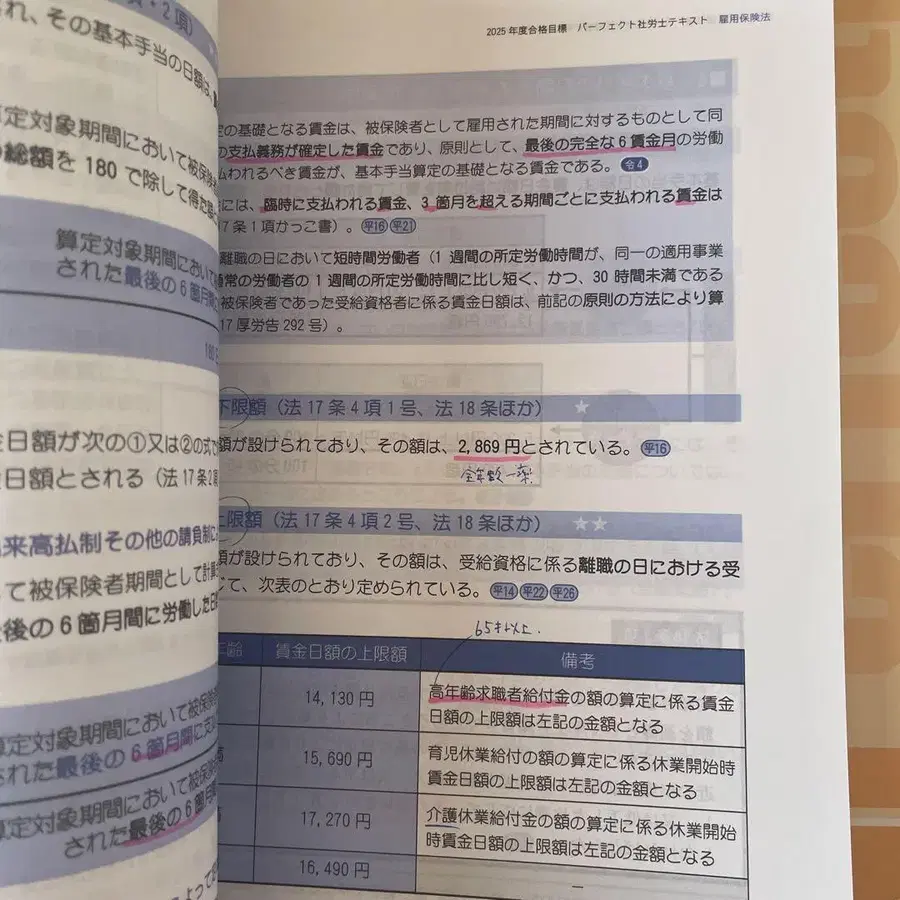 ・2項)
れ、その基本手当の日額は、
定対象期間において被保険
総額を 180 で除して得た
算定対象期間において
された最後の6箇月間
180
金日額が次の①又は②の式で
日額とされる(法17条2項
来高払制その他の請負制に
て被保険者期間として計算
後の6箇月間に労働した日
算定対象期間において被保険
された最後の6箇月間に支
算定対象期間において被保険
された最後の6箇月
2025年度合格目標 パーフェクト社労士テキスト 雇用保険法
定の基礎となる賃金は、被保険者として雇用された期間に対するものとして同
支払義務が確定した賃金であり、原則として、最後の完全な6賃金月の労働
払われるべき賃金が、基本手当算定の基礎となる賃金である。令4
には、臨時に支払われる賃金、3箇月を超える期間ごとに支払われる賃金は
17条1項かっこ書)。平16 平21
離職の日において短時間労働者(1週間の所定労働時間が、同一の適用事業
通常の労働者の1週間の所定労働時間に比し短く、かつ、30時間未満である
被保険者であった受給資格者に係る賃金日額は、前記の原則の方法により算
17厚労告292号)。
下限額(法17条4項1号、法18条ほか) ★
額が設けられており、その額は、2,869円とされている。平16
全年齢一律
上限額(法17条4項2号、法18条ほか) ★★
額が設けられており、その額は、受給資格に係る離職の日における受
て、次表のとおり定められている。平14 平22 平26
65才以上.
年齢 賃金日額の上限額 備考
14,130円 高年齢求職者給付金の額の算定に係る賃金
日額の上限額は左記の金額となる
15,690円 育児休業給付の額の算定に係る休業開始時
賃金日額の上限額は左記の金額となる
17,270円 介護休業給付金の額の算定に係る休業開始
時賃金日額の上限額は左記の金額となる
16,490円 −